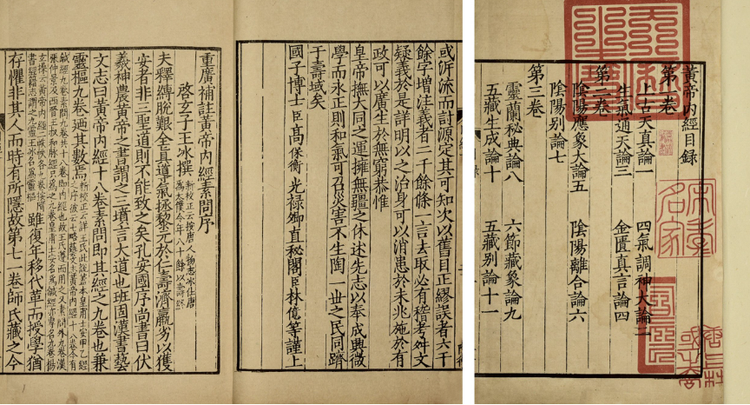 黃帝內經目錄
第一卷
上古天真論一 四氣調神大論二
生氣通天論三 金匱真言論四
第二卷
陰陽應象大論五 陰陽離合論六
陰陽別論七
第三卷
靈蘭秘典論八 六節藏象論九
五藏生成論十 五藏別論十一
或泝流而討源定其可知次以舊目正繆誤者六千
餘字增注義者二千餘條一言去取必有稽考舛文
疑義於是詳明以之治身可以消患於未兆施於有
政可以廣生於無窮恭惟
皇帝撫大同之運擁無疆之休述先志以奉成興微
學而永正則和氣可召災害不生陶一世之民同躋
于壽域矣
國子博士臣高保衡光祿卿直秘閣臣林億等謹上
重廣補註黃帝內經素問序
啓玄子王冰撰 新校正云按唐人物志冰仕唐
為太僕令年八十餘以壽終
夫釋縛脫艱全真導氣拯黎元於仁壽濟羸劣以獲
安者非三聖道則不能致之矣孔安國序尚書曰伏
羲神農黃帝之書謂之三墳言大道也班固漢書藝
文志曰黃帝內經十八卷素問即其經之九卷也兼
靈樞九卷迺其數焉
雖復年移代革而授學猶
存懼非其人而時有所隱故第七一卷師氏藏之今